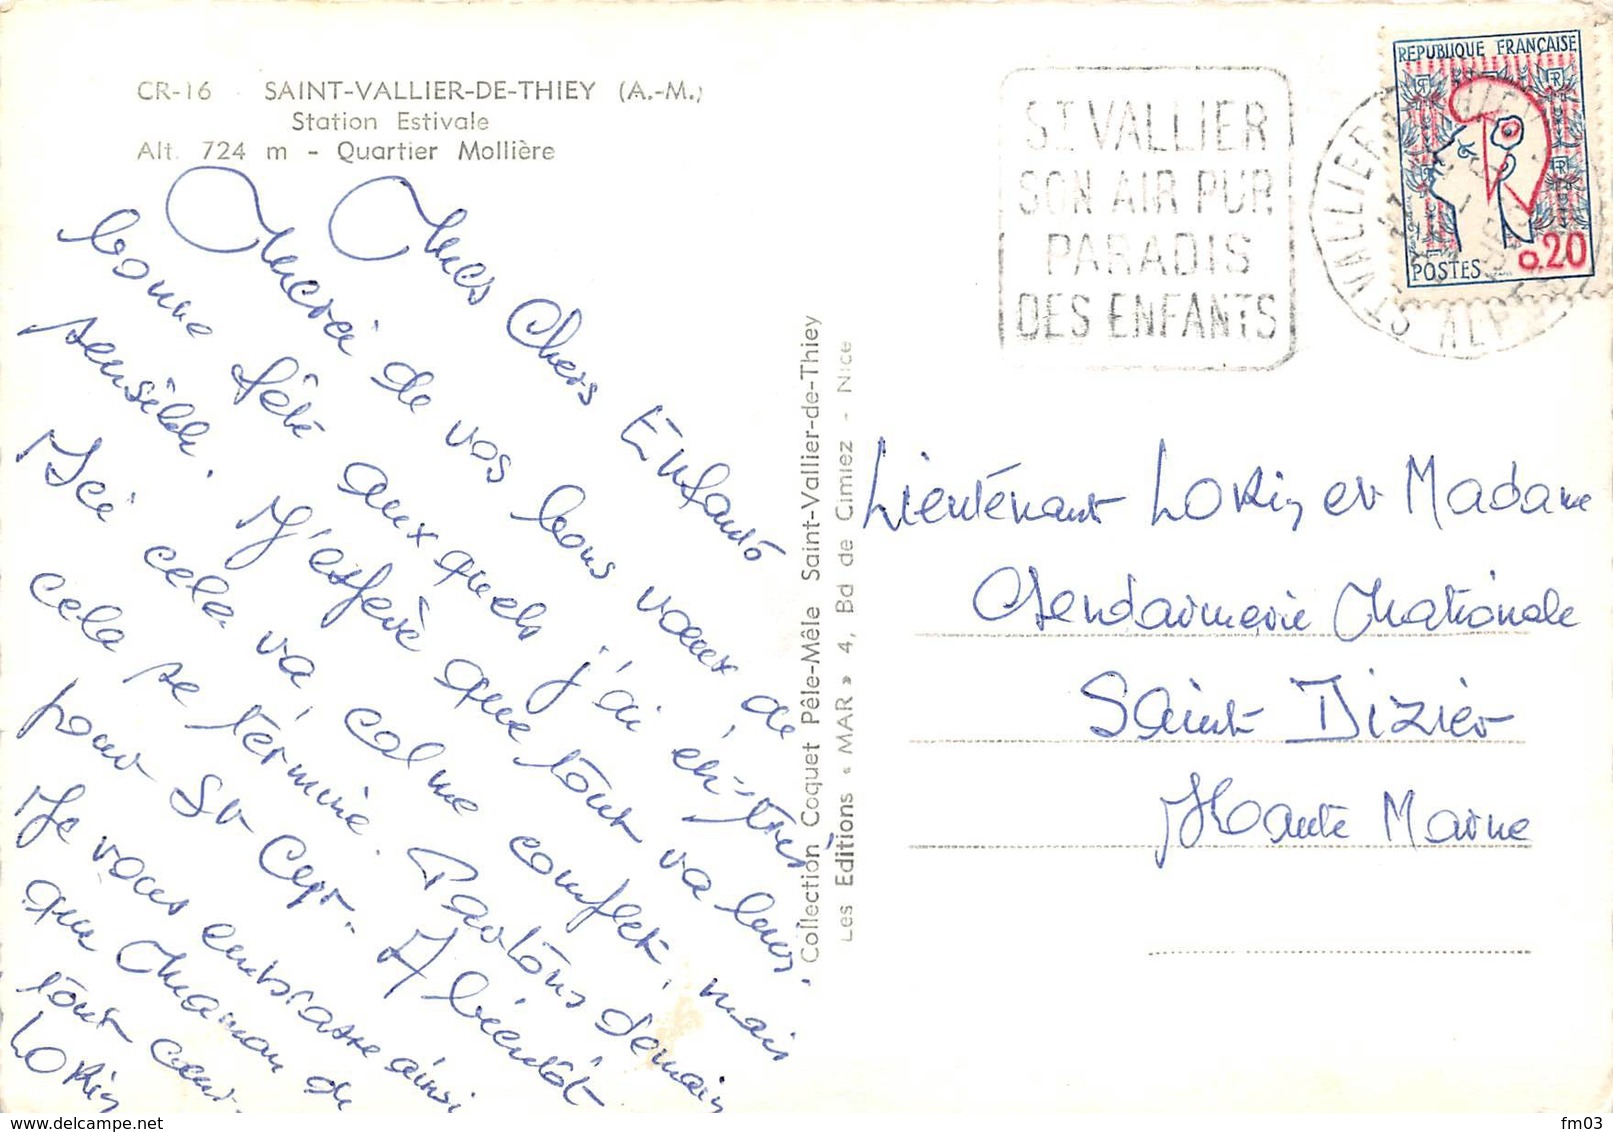 CR-16 SAINT-VALLIER-DE-THIEY (A.-M.)
Station Estivale
Alt. 724 m - Quartier Mollière
Mes Chers Enfants
Merci de vos bons vœux de
bonne fête aux quels j'ai été très
sensible. J'espère que tout va bien.
Ici cela va, calme complet, mais
cela se termine. Partons demain
pour St Cyr. A bientôt
Je vous embrasse ainsi
que Maman de
tout cœur.
Lorin
Collection Coquet Pêle-Mêle Saint-Vallier-de-Thiey
Les Editions « MAR » 4, Bd de Cimiez - Nice
ST VALLIER
SON AIR PUR
PARADIS
DES ENFANTS
ST VALLIER
REPUBLIQUE FRANÇAISE
RF
POSTES 0.20
Lieutenant Lorin et Madame
Gendarmerie Nationale
Saint Dizier
Haute Marne
www.delcampe.net
fm03